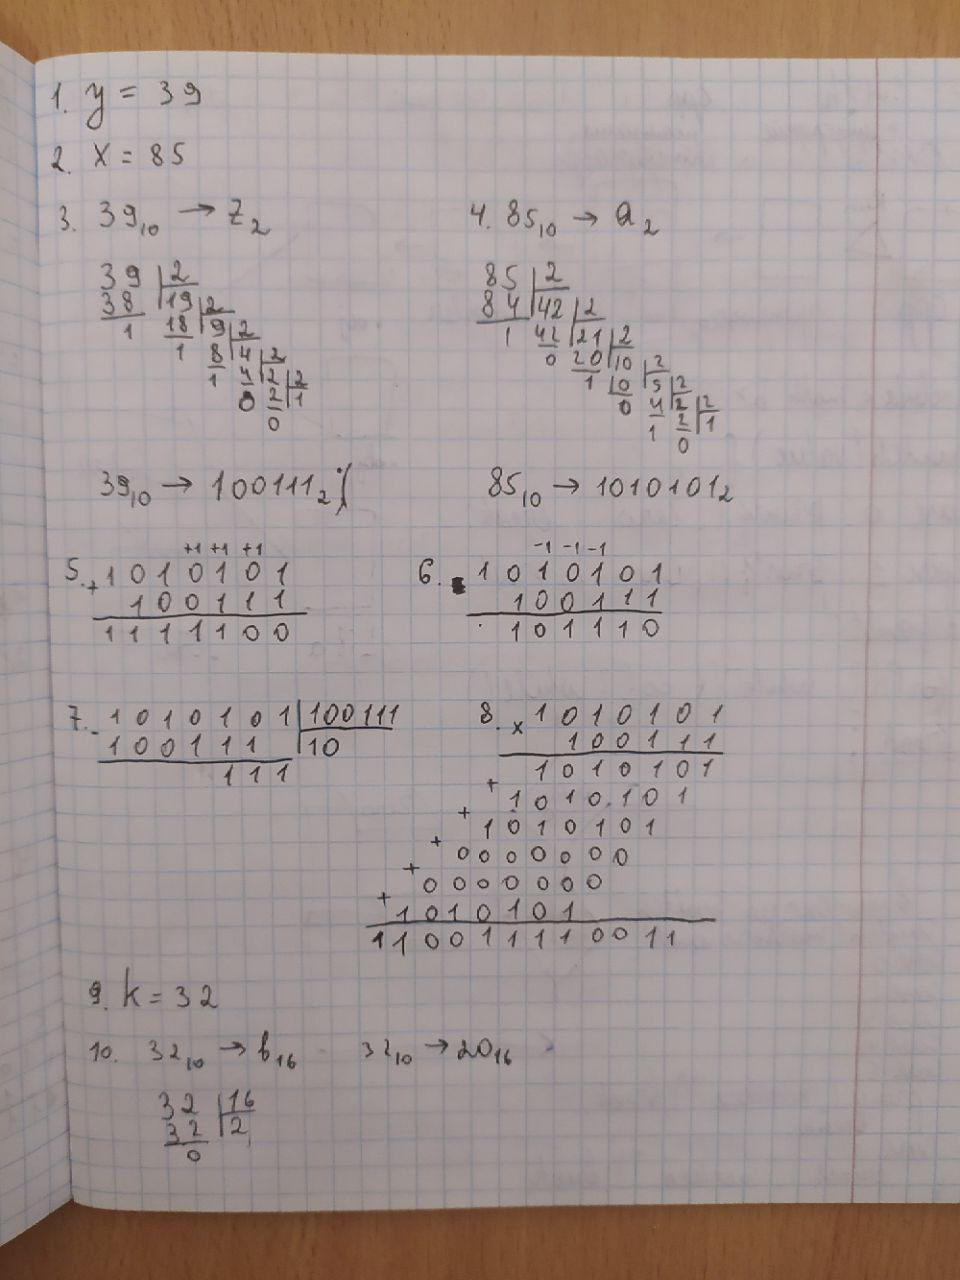 1. y = 39
2. x = 85
3. 39₁₀ → Z₂
4. 85₁₀ → a₂
39 | 2
38 | 19 | 2
1 18 | 9 | 2
1 8 | 4 | 2
1 4 | 2 | 2
0 2 | 1
0
85 | 2
84 | 42 | 2
1 42 | 21 | 2
0 20 | 10 | 2
1 10 | 5 | 2
0 4 | 2 | 2
1 2 | 1
0
39₁₀ → 100111₂
85₁₀ → 1010101₂
+1 +1 +1
5. + 1010101
100111
1111100
-1 -1 -1
6. 1010101
100111
101110
7. - 1010101 | 100111
100111 | 10
111
8. × 1010101
100111
1010101
+ 1010101
+ 1010101
+ 0000000
+ 0000000
+ 1010101
110011110011
9. k = 32
10. 32₁₀ → b₁₆ 32₁₀ → 20₁₆
32 | 16
32 | 2
0